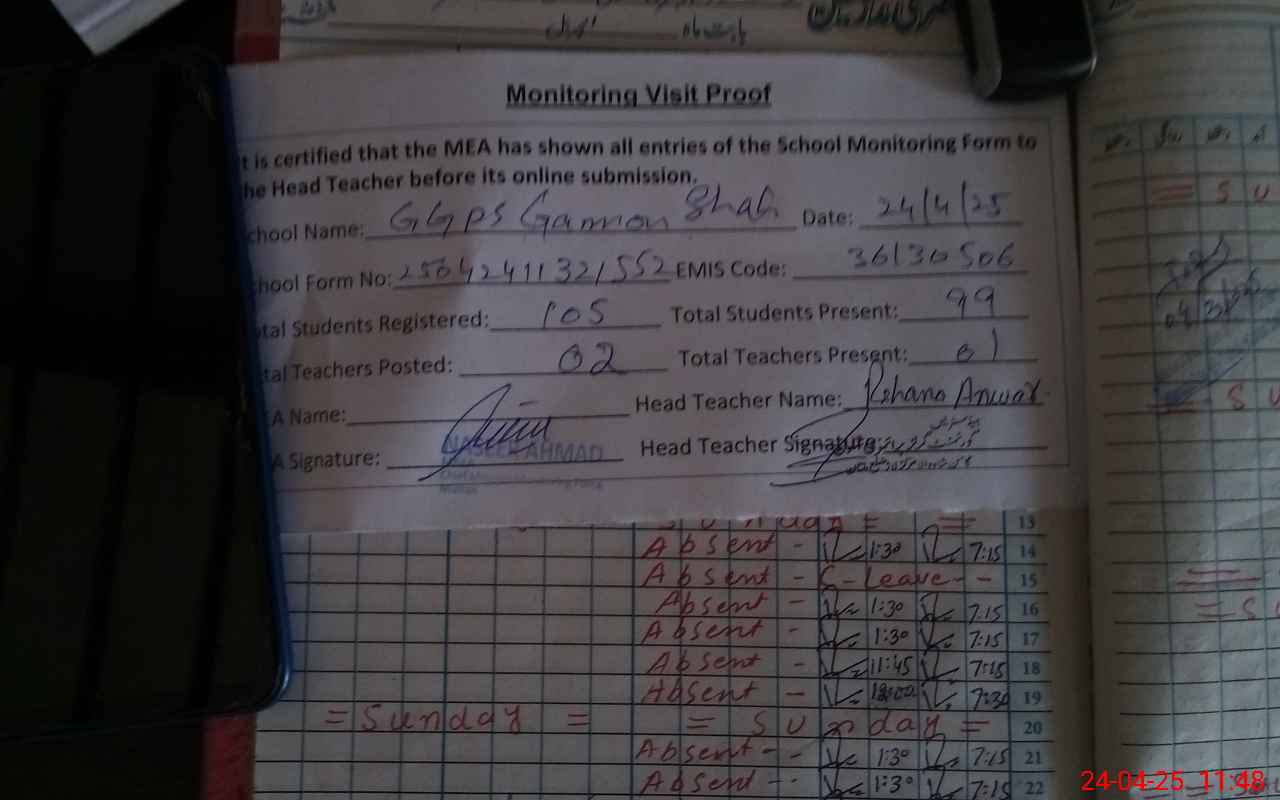 بابت ماہ
Monitoring Visit Proof
t is certified that the MEA has shown all entries of the School Monitoring Form to
he Head Teacher before its online submission.
chool Name: GGPS Gamon Shah Date: 24/4/25
chool Form No: 25042411321552 EMIS Code: 36130506
tal Students Registered: 105 Total Students Present: 99
tal Teachers Posted: 02 Total Teachers Present: 01
A Name: Head Teacher Name: Rehana Anwar
A Signature: NASEER AHMAD Head Teacher Signature:
= Sunday = 13
Absent - 1:30 7:15 14
Absent - C-Leave - - 15
Absent - 1:30 7:15 16
Absent - 1:30 7:15 17
Absent - 11:45 7:15 18
Absent - 7:30 19
= Sunday = = Sunday = 20
Absent - - 1:30 7:15 21
Absent - - 1:30 7:15 22
= S U
S U
= S U
24-04-25 11:48